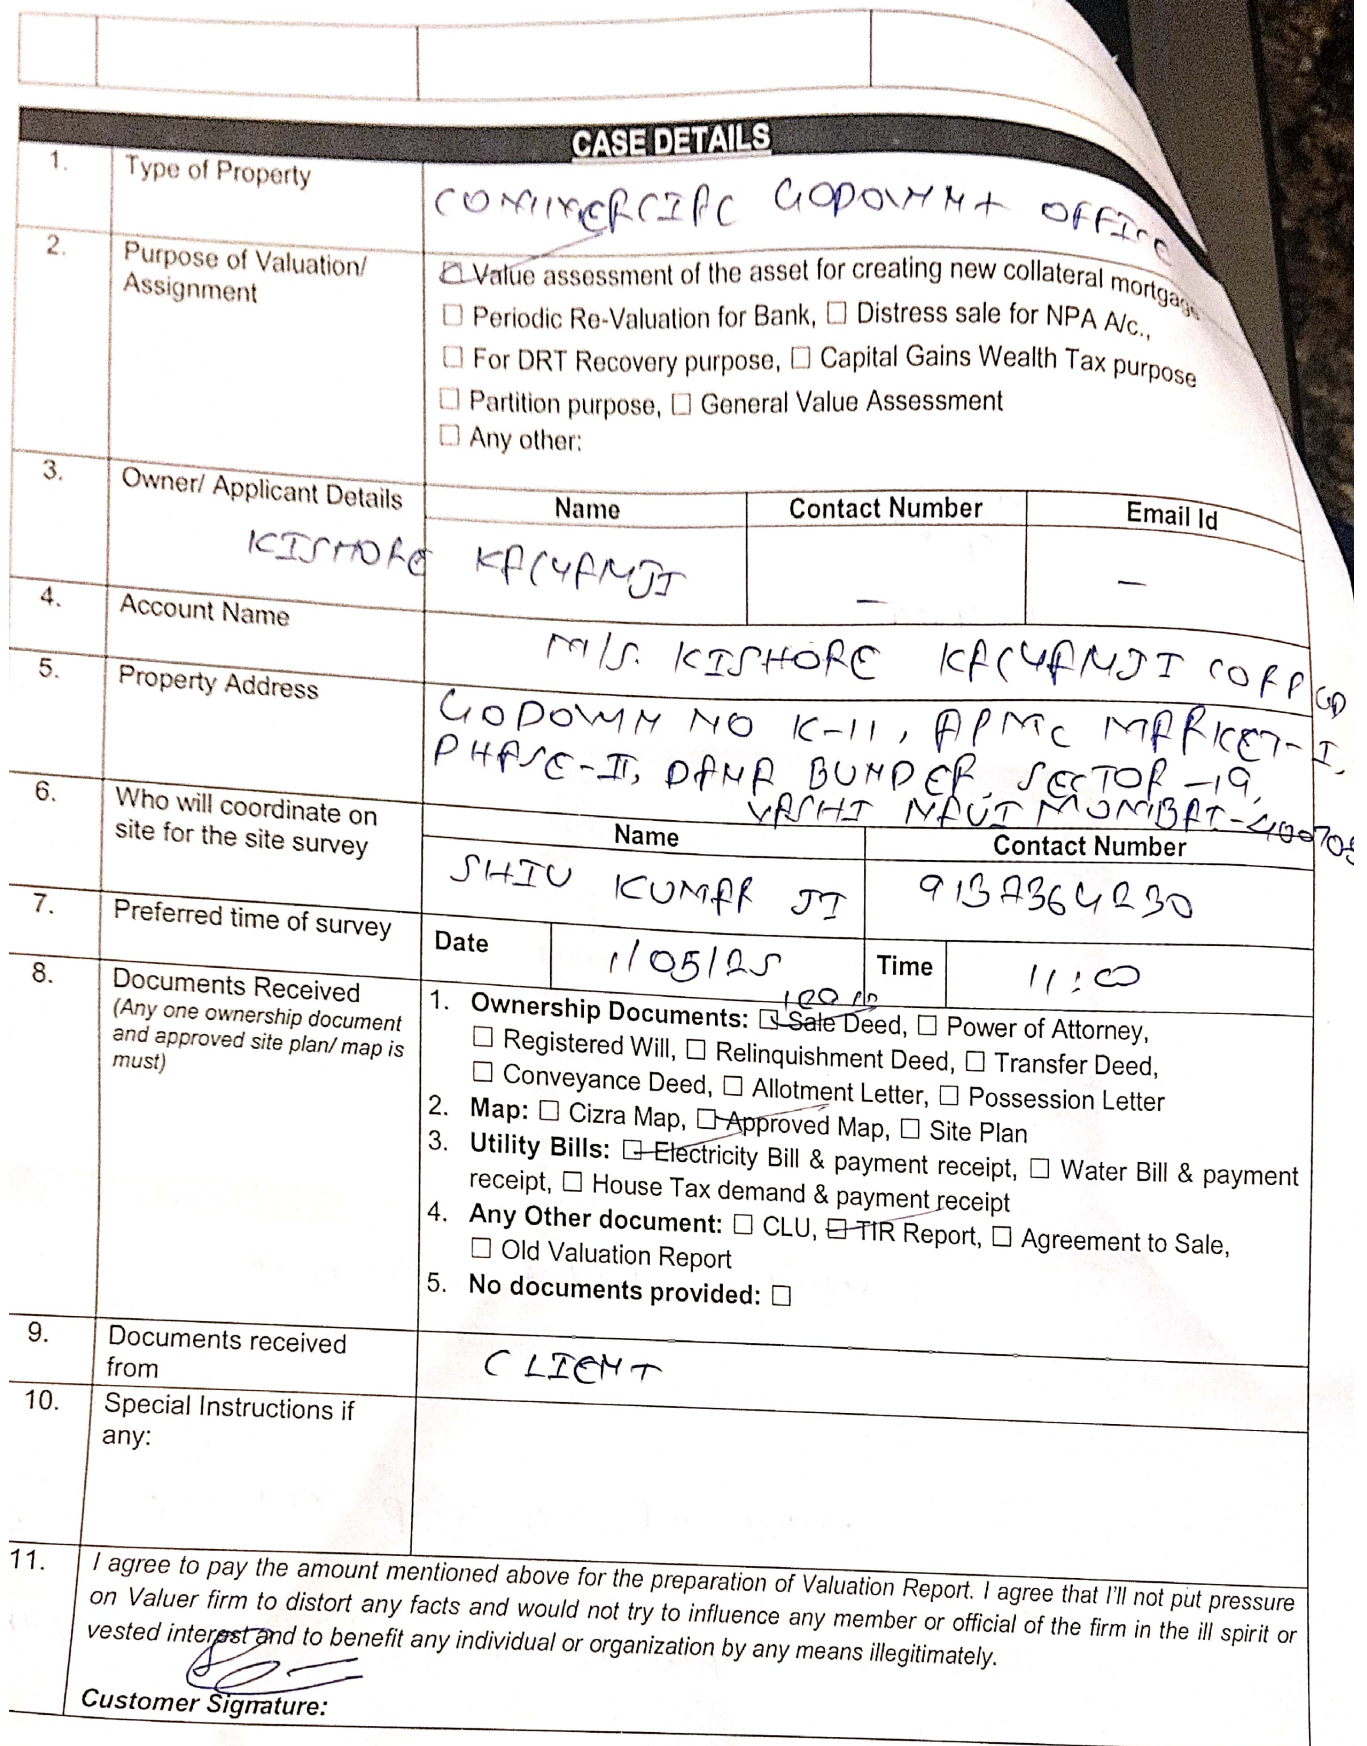 CASE DETAILS
1. Type of Property
COMMERCIAL GODOWN + OFFICE
2. Purpose of Valuation/ Assignment
☑ Value assessment of the asset for creating new collateral mortgage
☐ Periodic Re-Valuation for Bank, ☐ Distress sale for NPA A/c.,
☐ For DRT Recovery purpose, ☐ Capital Gains Wealth Tax purpose
☐ Partition purpose, ☐ General Value Assessment
☐ Any other:
3. Owner/ Applicant Details
Name Contact Number Email Id
KISHORE KALYANJI — —
4. Account Name
M/S. KISHORE KALYANJI CORP
5. Property Address
GODOWN NO K-11, APMC MARKET-I,
PHASE-II, DANA BUNDER, SECTOR-19,
VASHI NAVI MUMBAI-400705
6. Who will coordinate on site for the site survey
Name Contact Number
SHIV KUMAR JI 9137364230
7. Preferred time of survey
Date 1/05/25 Time 11:00
8. Documents Received
(Any one ownership document
and approved site plan/ map is
must)
1. Ownership Documents: ☑ Sale Deed, ☐ Power of Attorney,
☐ Registered Will, ☐ Relinquishment Deed, ☐ Transfer Deed,
☐ Conveyance Deed, ☐ Allotment Letter, ☐ Possession Letter
2. Map: ☐ Cizra Map, ☑ Approved Map, ☐ Site Plan
3. Utility Bills: ☑ Electricity Bill & payment receipt, ☐ Water Bill & payment
receipt, ☐ House Tax demand & payment receipt
4. Any Other document: ☐ CLU, ☑ TIR Report, ☐ Agreement to Sale,
☐ Old Valuation Report
5. No documents provided: ☐
9. Documents received
from
CLIENT
10. Special Instructions if
any:
11. I agree to pay the amount mentioned above for the preparation of Valuation Report. I agree that I'll not put pressure
on Valuer firm to distort any facts and would not try to influence any member or official of the firm in the ill spirit or
vested interest and to benefit any individual or organization by any means illegitimately.
Customer Signature: